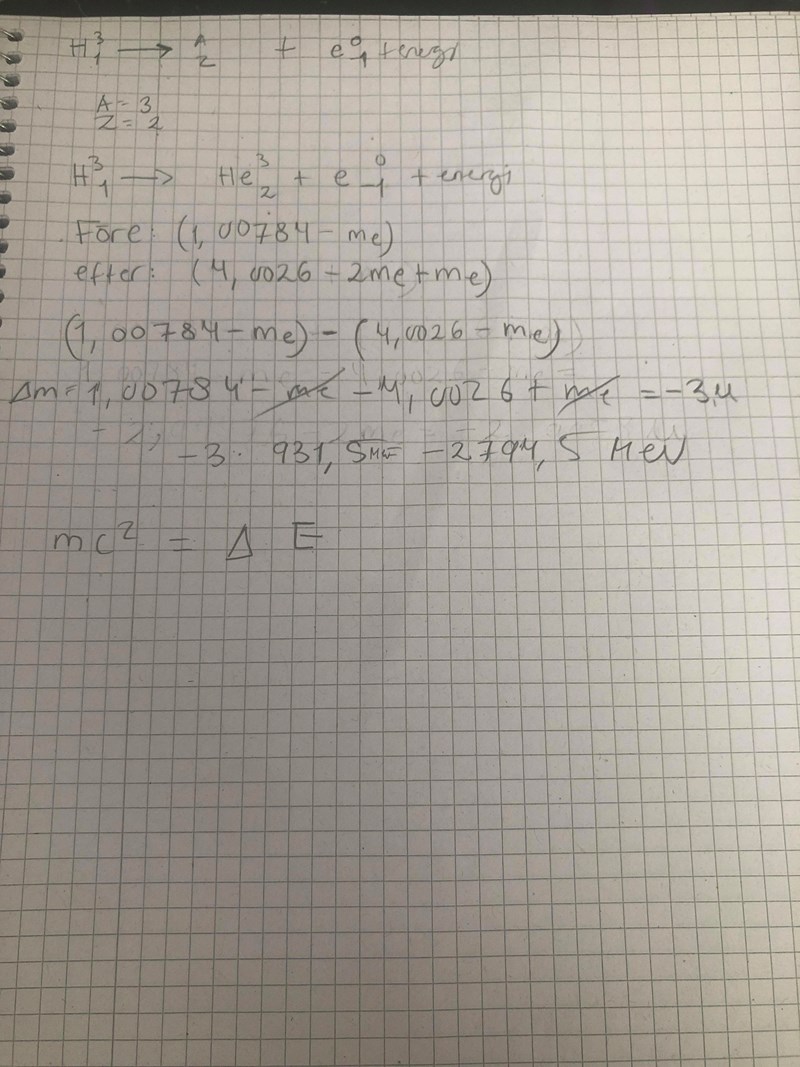 H³₁ → ᴬ_Z + e⁰₋₁ + energi
A = 3
Z = 2
H³₁ → He³₂ + e⁰₋₁ + energi
Före: (1,00784 - me)
efter: (4,0026 - 2me + me)
(1,00784 - me) - (4,0026 - me)
Δm = 1,00784 - me - 4,0026 + me = -3u
-3 · 931,5 MeV -2794,5 MeV
mc² = Δ E